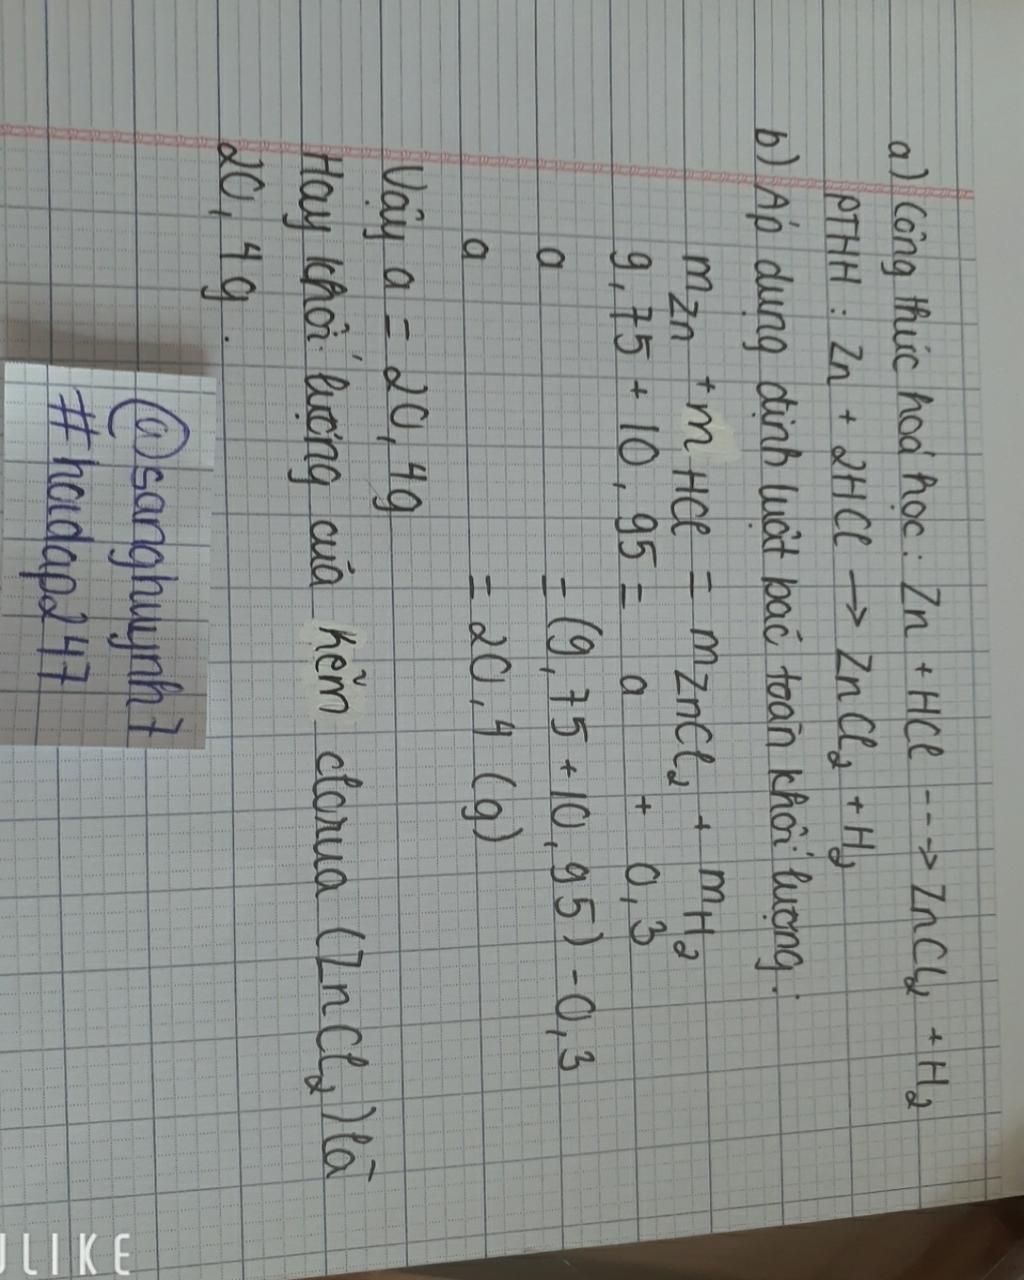 a) Công thức hoá học: Zn + HCl ---> ZnCl₂ + H₂
PTHH : Zn + 2HCl → ZnCl₂ + H₂
b) Áp dụng định luật bảo toàn khối lượng:
mZn + mHCl = mZnCl₂ + mH₂
9,75 + 10,95 = a + 0,3
a = (9,75 + 10,95) - 0,3
a = 20,4 (g)
Vậy a = 20,4g
Hay khối lượng của kẽm clorua (ZnCl₂) là
20,4g.
@sanghuynh7
#hoidap247
ULIKE